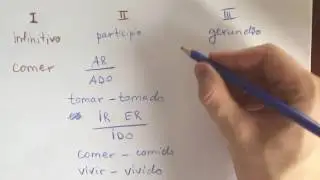 I II III
infinitivo participio gerundio
comer AR
ADO
tomar - tomado
IR ER
IDO
comer - comido
vivir - vivido